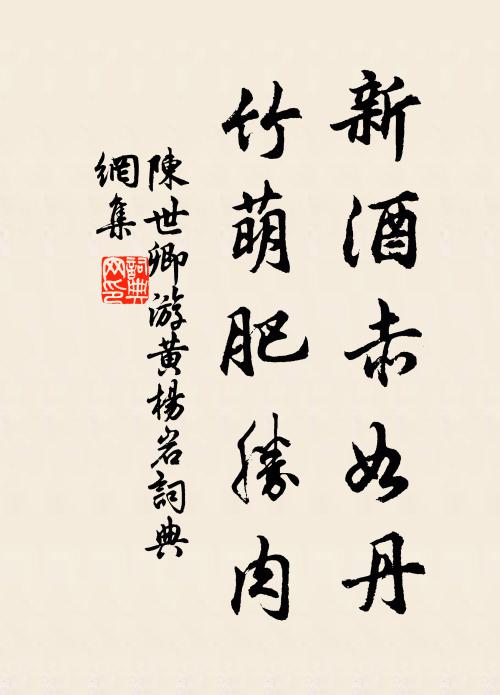 新酒赤如丹
竹萌肥勝肉
陳世卿游黃楊岩詞典
網集
詞典網印